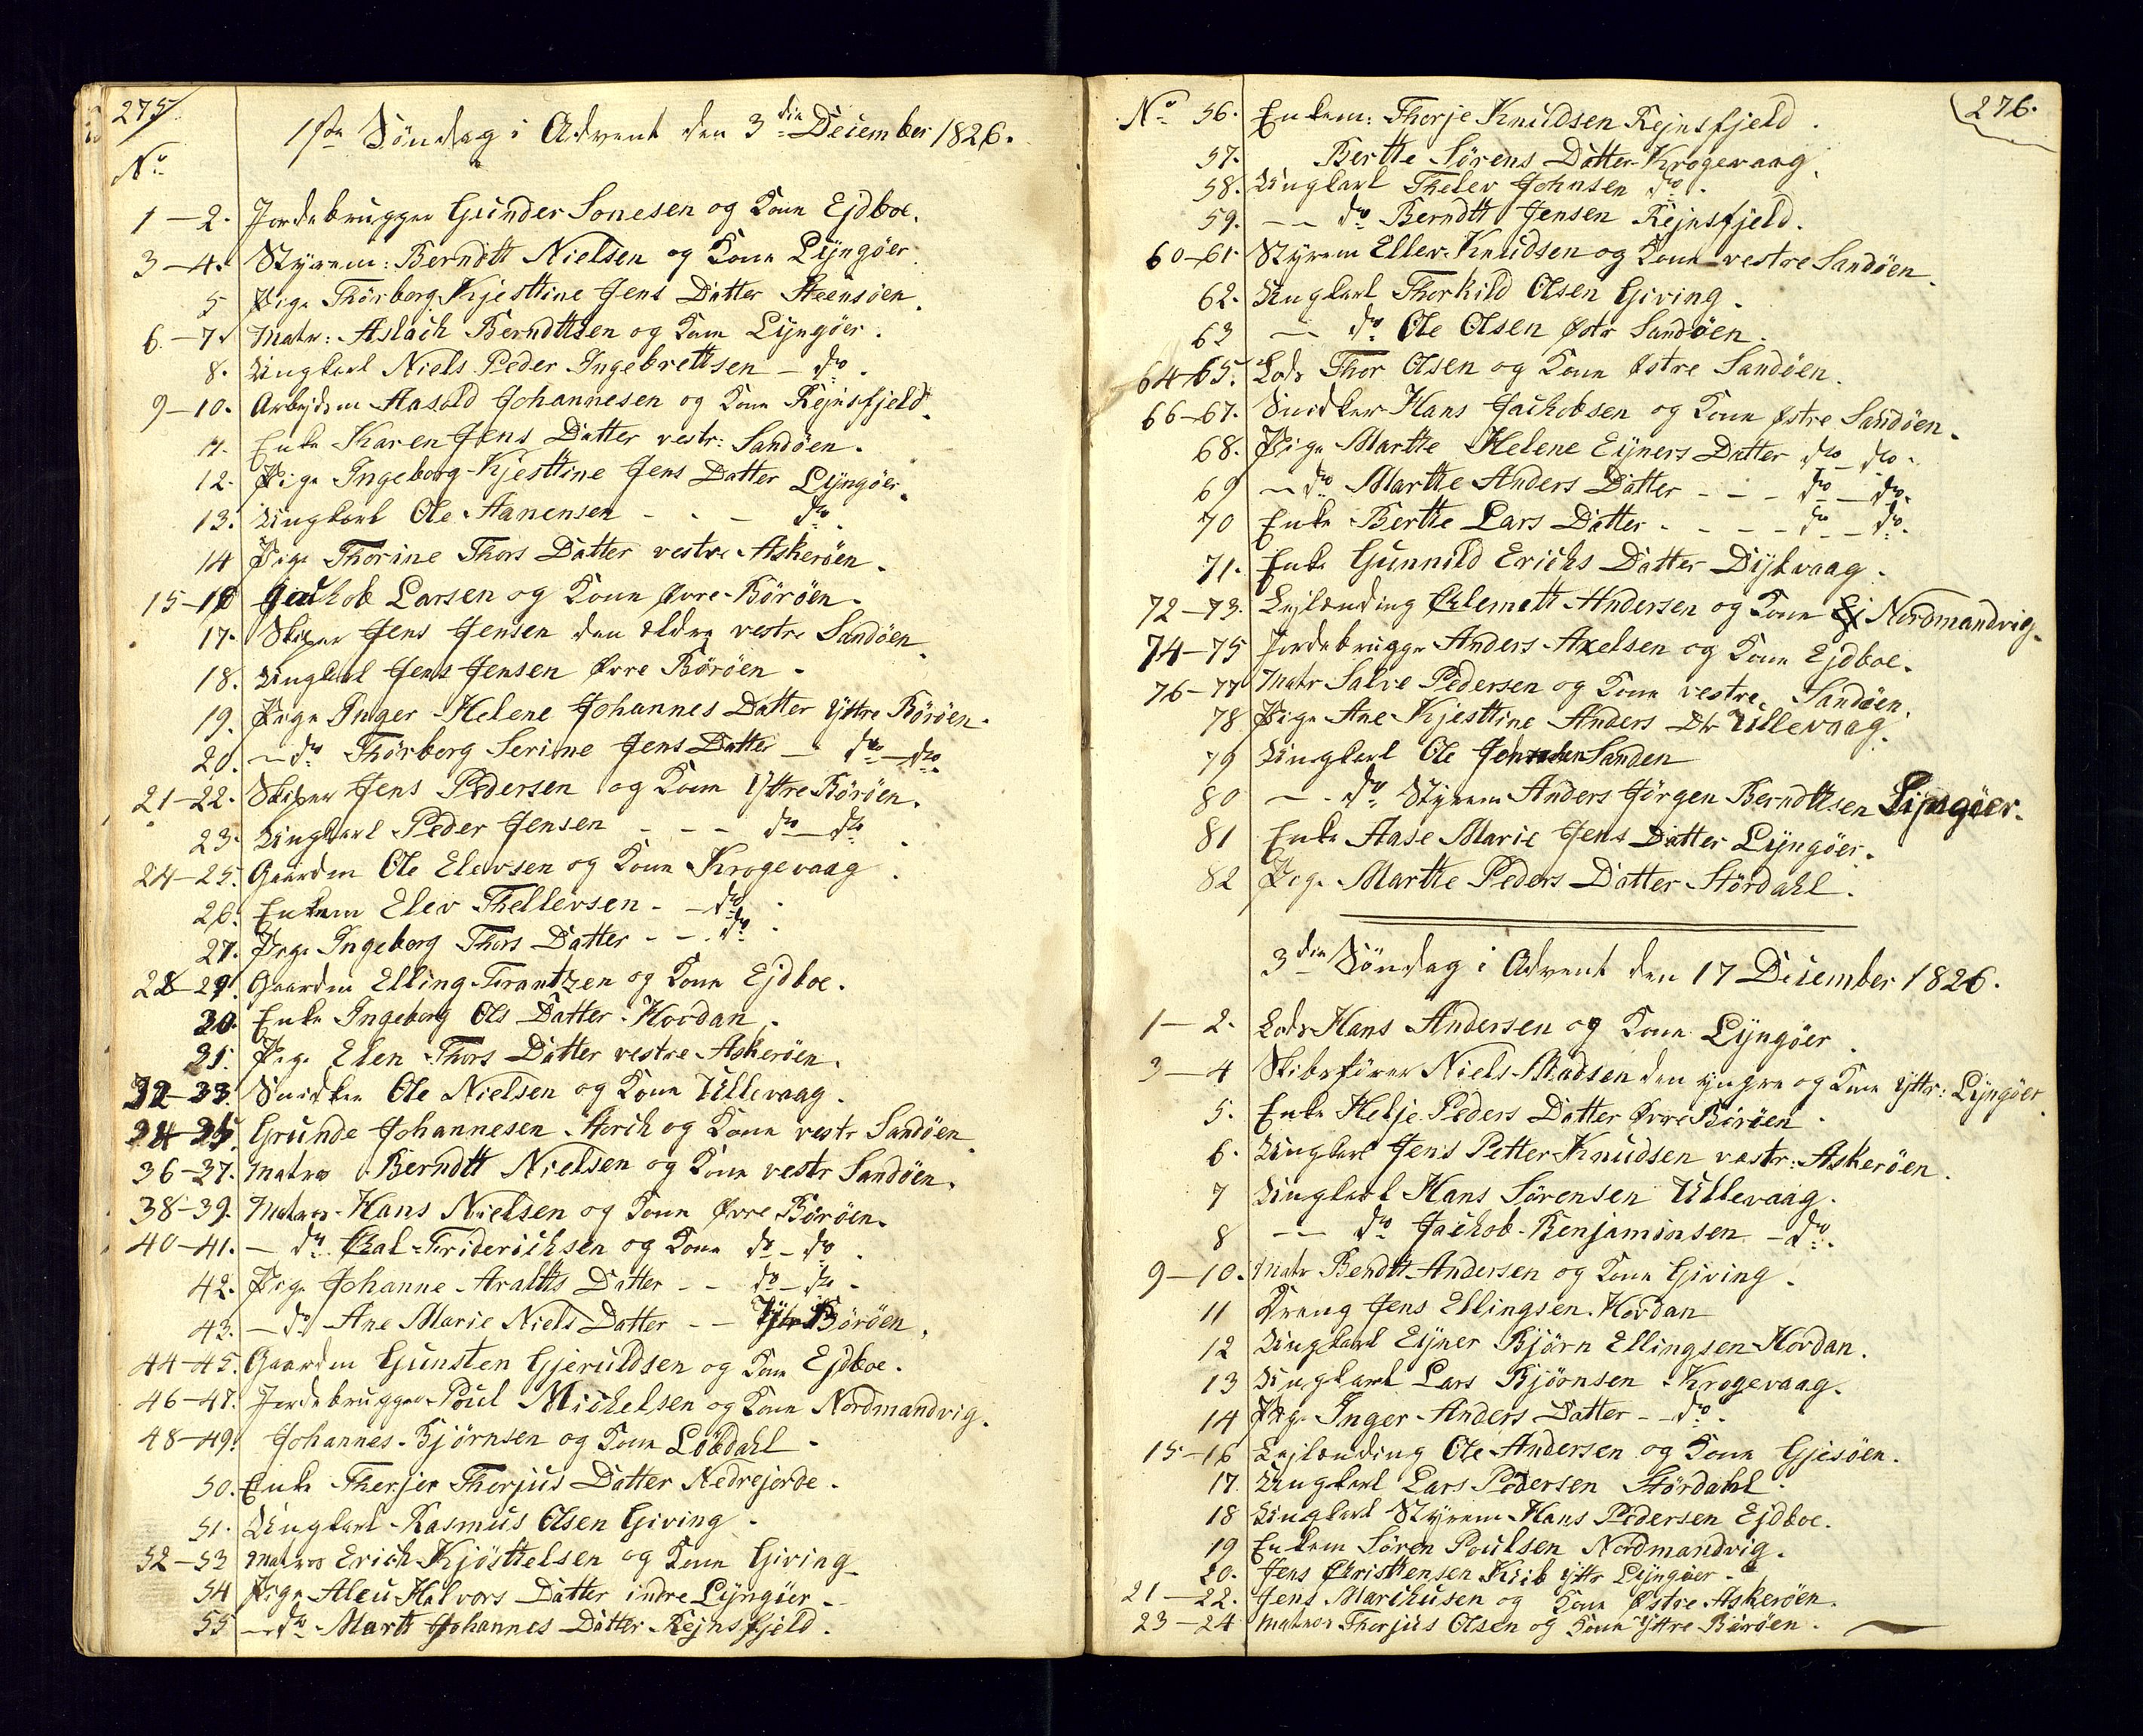 275
1ste Söndag i Advent den 3die December 1826.
No
1-2. Jordebrugger Gunder Sonesen og Kone Ejdboe.
3-4. Styrem: Berndtt Nielsen og Kone Lyngöer.
5 Pige Thörborg Kjesttine Jens Datter Steensöen.
6-7 Matr: Aslach Berndttsen og Kone Lyngöer.
8. Ungkarl Niels Peder Ingebrettsen - do.
9-10. Arbejdsm Aasold Johannesen og Kone Rejnsfjeld.
11. Enke Karen Jens Datter vestr: Sandöen.
12. Pige Ingeborg Kjesttine Jens Datter Lyngöer.
13. Ungkarl Ole Aanensen - - - do.
14 Pige Thorine Thors Datter vestre Askeröen.
15-16 Jachob Larsen og Kone Øvre Böröen.
17. Skiper Jens Jensen den ældre vestre Sandöen.
18. Ungkarl Jens Jensen Øvre Böröen -
19. Pige Inger Helene Johannes Datter Yttre Böröen.
20. - do Thörborg Serine Jens Datter - do - do.
21-22. Skiper Jens Pedersen og Kone Yttre Böröen.
23. Ungkarl Peder Jensen - - - do - do.
24-25. Gaardm Ole Elevsen og Kone Krogevaag.
26. Enkem Elev Thellevsen - - do.
27. Pige Ingeborg Thors Datter - - do.
28-29. Gaardm Elling Frantzen og Kone Ejdboe.
30. Enke Ingeborg Ols Datter Hovdan.
31. Pige Elen Thors Datter vestre Askeröen.
32-33. Snidker Ole Nielsen og Kone Ullevaag.
34-35 Grunde Johannesen Storch og Kone vestr Sandöen
36-37. Matros Berndtt Nielsen og Kone vestr Sandöen.
38-39. Matros Hans Nielsen og Kone Øvre Böröen.
40-41. - do Chal Friderichsen og Kone do - do.
42. Pige Johanne Aralts Datter - - do - do -
43. - do Ane Marie Niels Datter - - Yttr Böröen.
44-45. Gaardm Gunsten Gjeruldsen og Kone Ejdboe.
46-47. Jordebrugger Poul Michelsen og Kone Nordmandvig.
48-49. Johannes Bjørnsen og Kone Lövdahl -
50. Enke Therjer Thorjus Datter Nedrejorde.
51. Ungkarl Rasmus Olsen Giving -
52-53 Matros Erich Kjösttelsen og Kone Giving
54 Pige Aleu Halvors Datter indre Lyngöer -
55 - do Marth Johannes Datter Rejnsfjeld.
276.
No 56. Enkem: Thorje Knudsen Rejnsfjeld.
57. Bertte Sörens Datter Krogevaag.
58. Ungkarl Thelev Johnsen do.
59. - - do Berndtt Jensen Rejnsfjeld.
60-61. Styrem Ellev Knudsen og Kone vestre Sandöen.
62. Ungkarl Thorkild Olsen Giving.
63 - - do Ole Olsen Østr Sandöen.
64-65. Lods Thor Olsen og Kone Østre Sandöen.
66-67. Snidker Hans Jachobsen og Kone Østre Sandöen.
68. Pige Martte Helene Eijners Datter do - do.
69 - do Martte Anders Datter - - - do - do.
70 Enke Bertte Lars Datter - - - - do - do.
71. Enke Gunnild Erichs Datter Dijbvaag.
72-73. Lejlænding Chlemett Andersen og Kone Nordmandvig.
74-75 Jordebrugger Anders Axelsen og Kone Ejdboe.
76-77 Matr Salve Pedersen og Kone vestre Sandöen.
78 Pige Ane Kjesttine Anders Dtr Ullevaag.
79 Ungkarl Ole Sanden
80 - - do Styrem Anders Jörgen Berndttsen Lyngöer.
81 Enke Aase Marie Jens Datter Lyngöer.
82 Pige Martte Peders Datter Stördahl.
3die Söndag i Advent den 17 December 1826.
1-2. Lods Hans Andersen og Kone Lyngöer.
3-4 Skibsförer Niels Madsen den yngre og Kone Yttr: Lyngöer.
5. Enke Helje Peders Datter Øvre Böröen.
6. Ungkarl Jens Petter Knudsen vestr: Askeröen.
7 Ungkarl Hans Sörensen Ullevaag.
8 - - do Jachob Benjaminsen - do.
9-10. Matr Bendtt Andersen og Kone Giving.
11 Dreng Jens Ellingsen Hovdan
12 Ungkarl Eijner Bjørn Ellingsen Hovdan.
13 Ungkarl Lars Bjöonsen Krogevaag.
14 Pige Inger Anders Datter - - do.
15-16 Lejlænding Ole Andersen og Kone Gjesöen.
17. Ungkarl Lars Pedersen Stördahl.
18 Ungkarl Styrem Hans Pedersen Ejdboe.
19 Enkem Sören Poulsen Nordmandvig.
20. Jens Christtensen Krib Yttr Lyngöer.
21-22. Jens Marchusen og Kone Østre Askeröen.
23-24 Matros Thorjus Olsen og Kone Yttre Böröen.